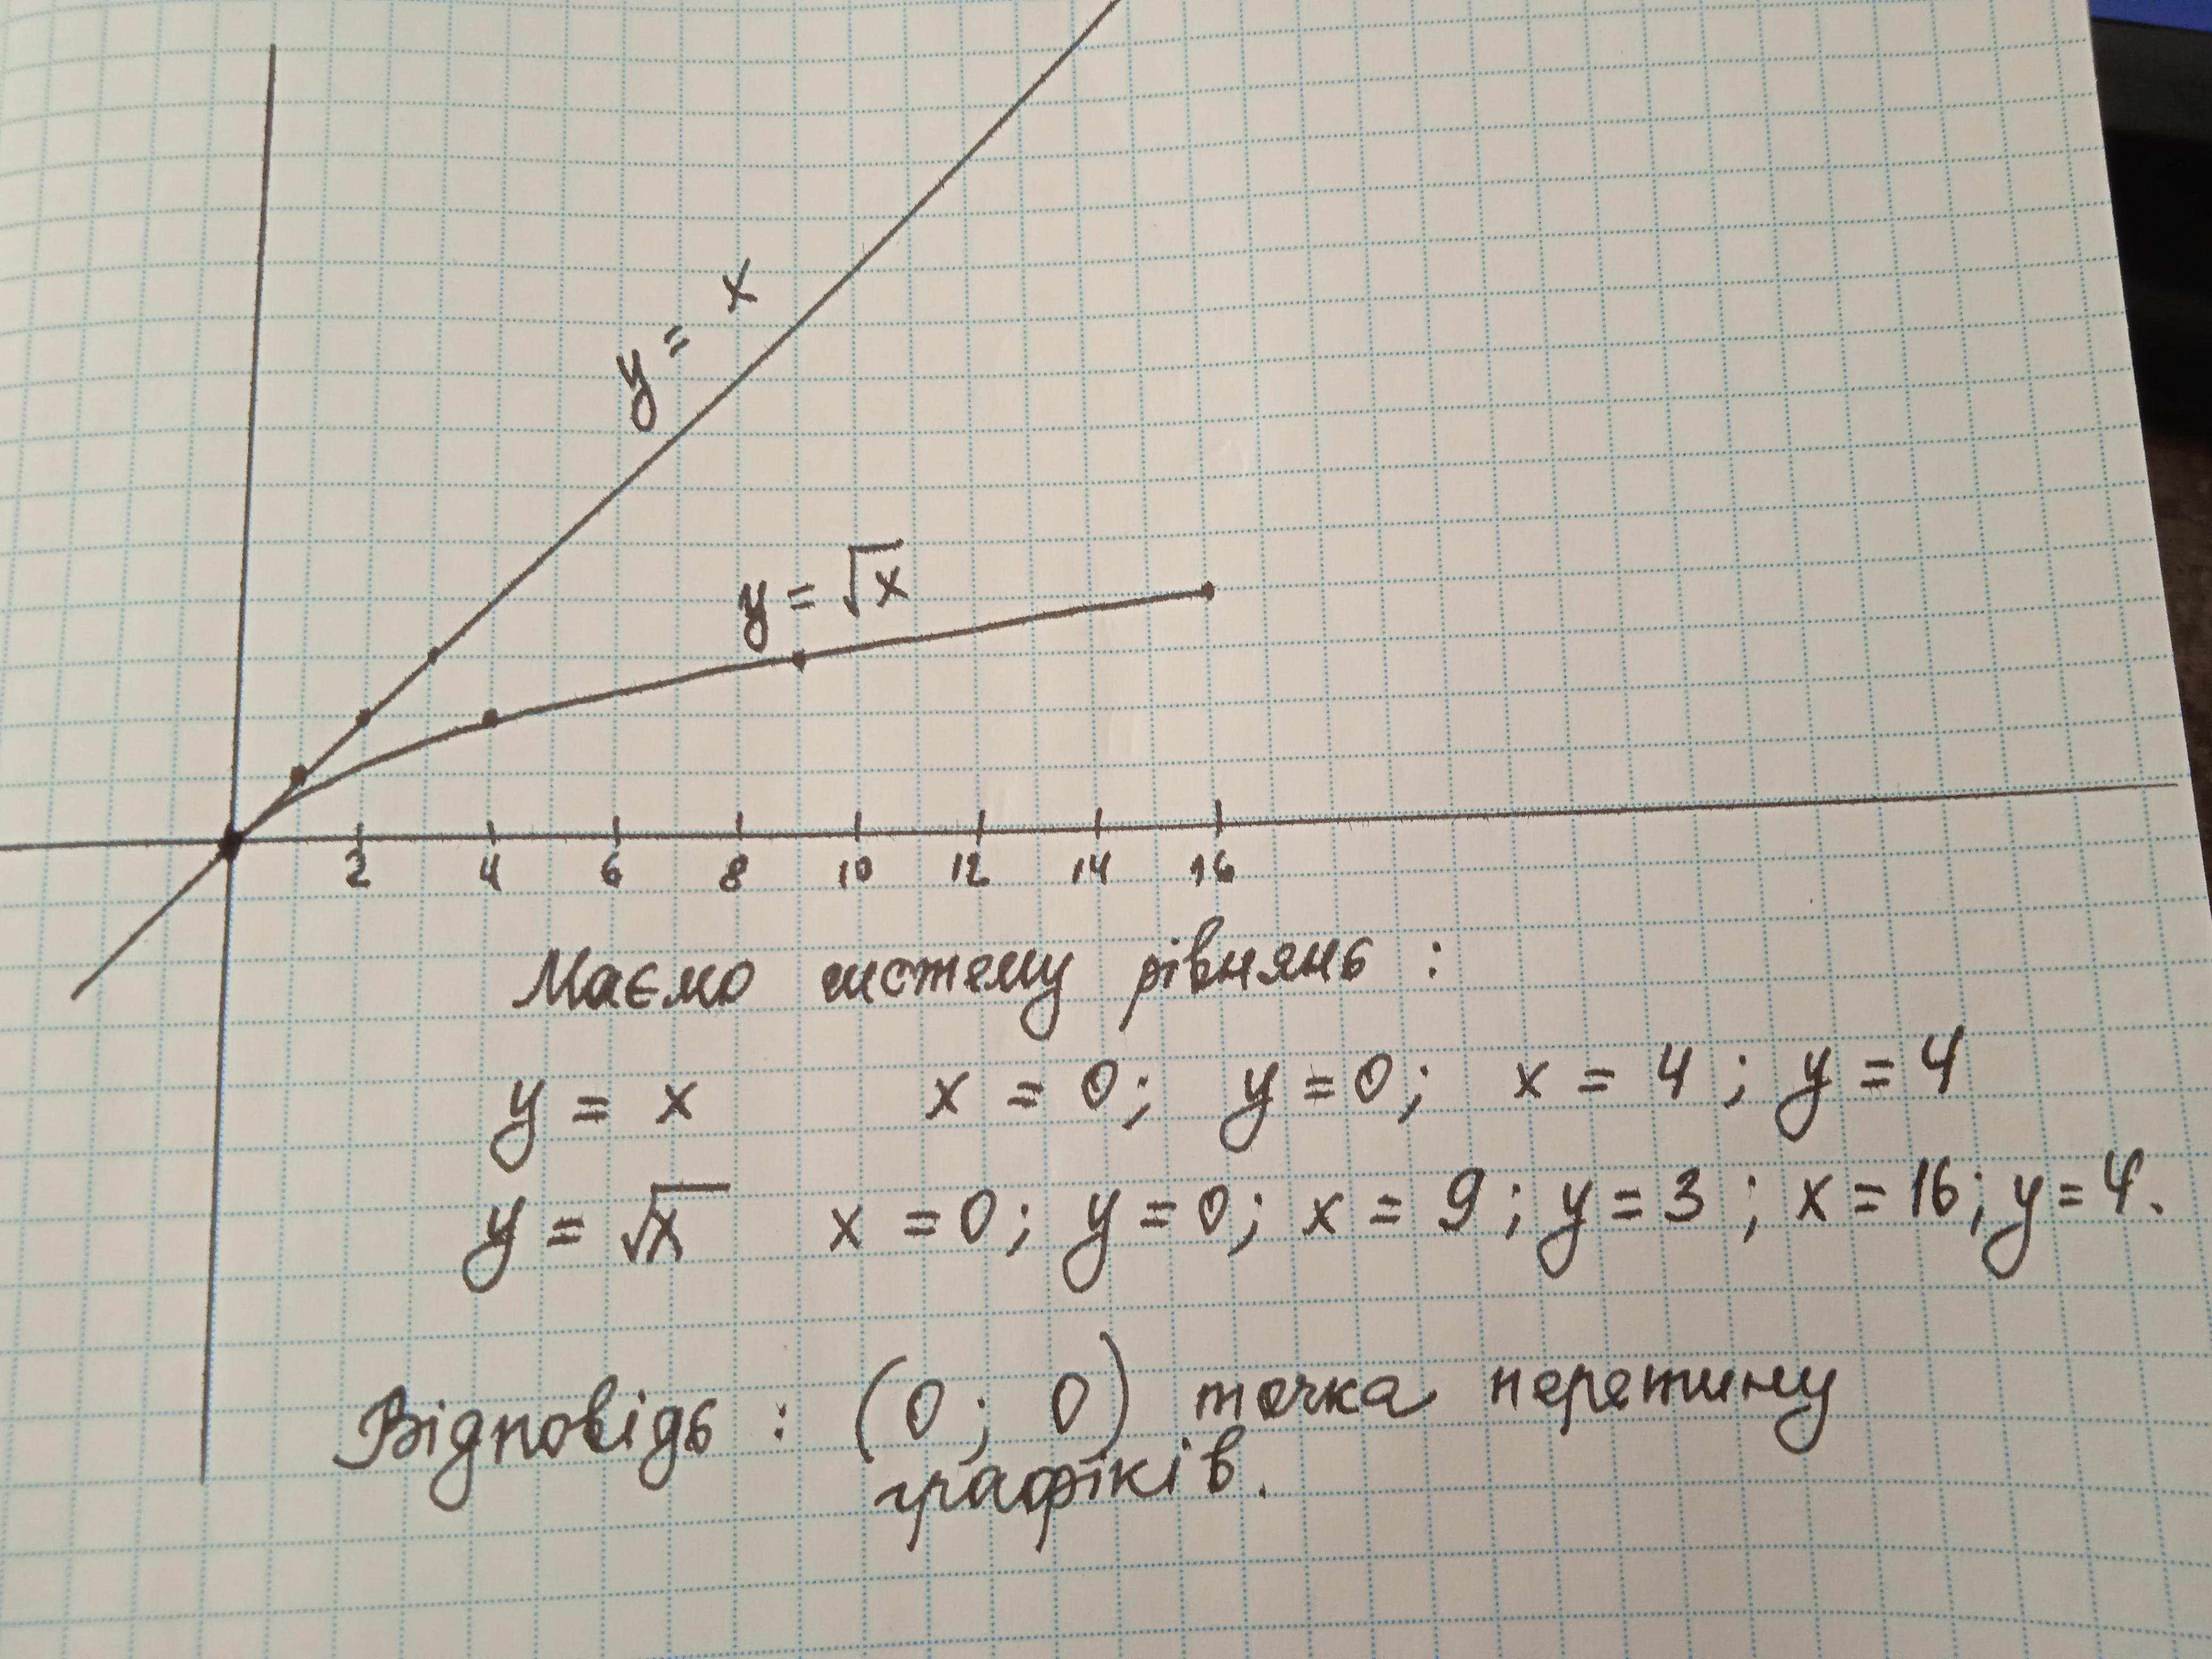 y = x
y = √x
2 4 6 8 10 12 14 16
Маємо систему рівнянь :
y = x x = 0; y = 0; x = 4; y = 4
y = √x x = 0; y = 0; x = 9; y = 3; x = 16; y = 4.
Відповідь : (0; 0) точка перетину
графіків.